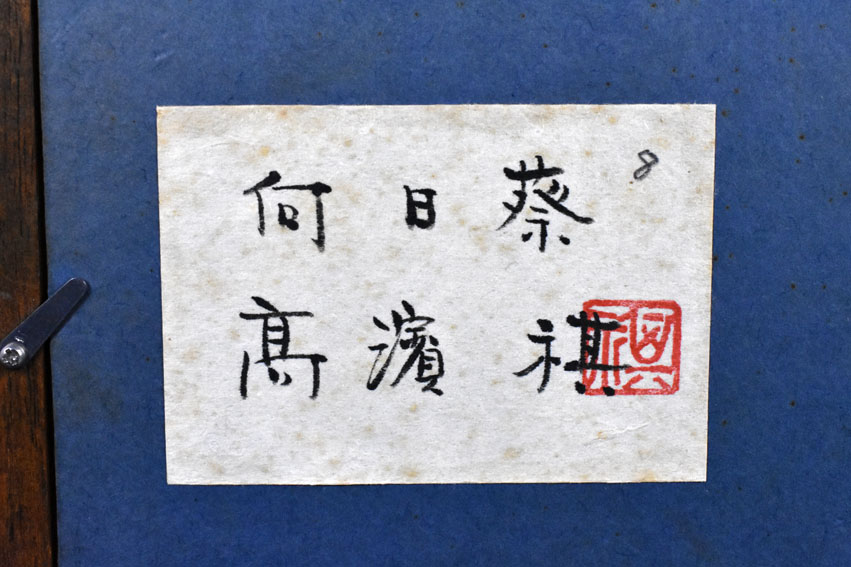 8
何日蔡
高濱祺